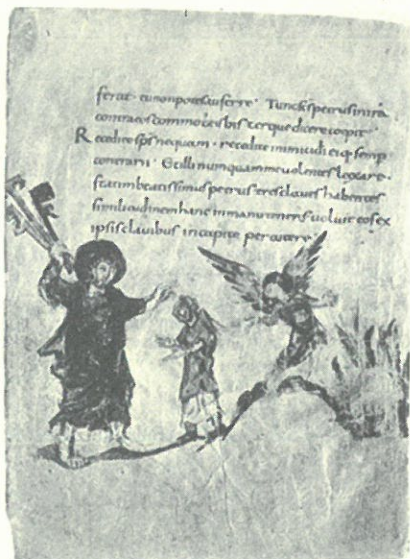 ferat · cum non potes auferre · Tunc scs petrus in ira
contra eos commotus bis terque dicere coepit ·
Recedite sps nequam · recedite inimici di eiq; semp
contrarii · Et illi numquam me uolentes laxare ·
statim beatissimus petrus tres claues habentes
similitudinem hanc in manu tenens uoluit eos ex
ipsis clauibus in capite percutere ·